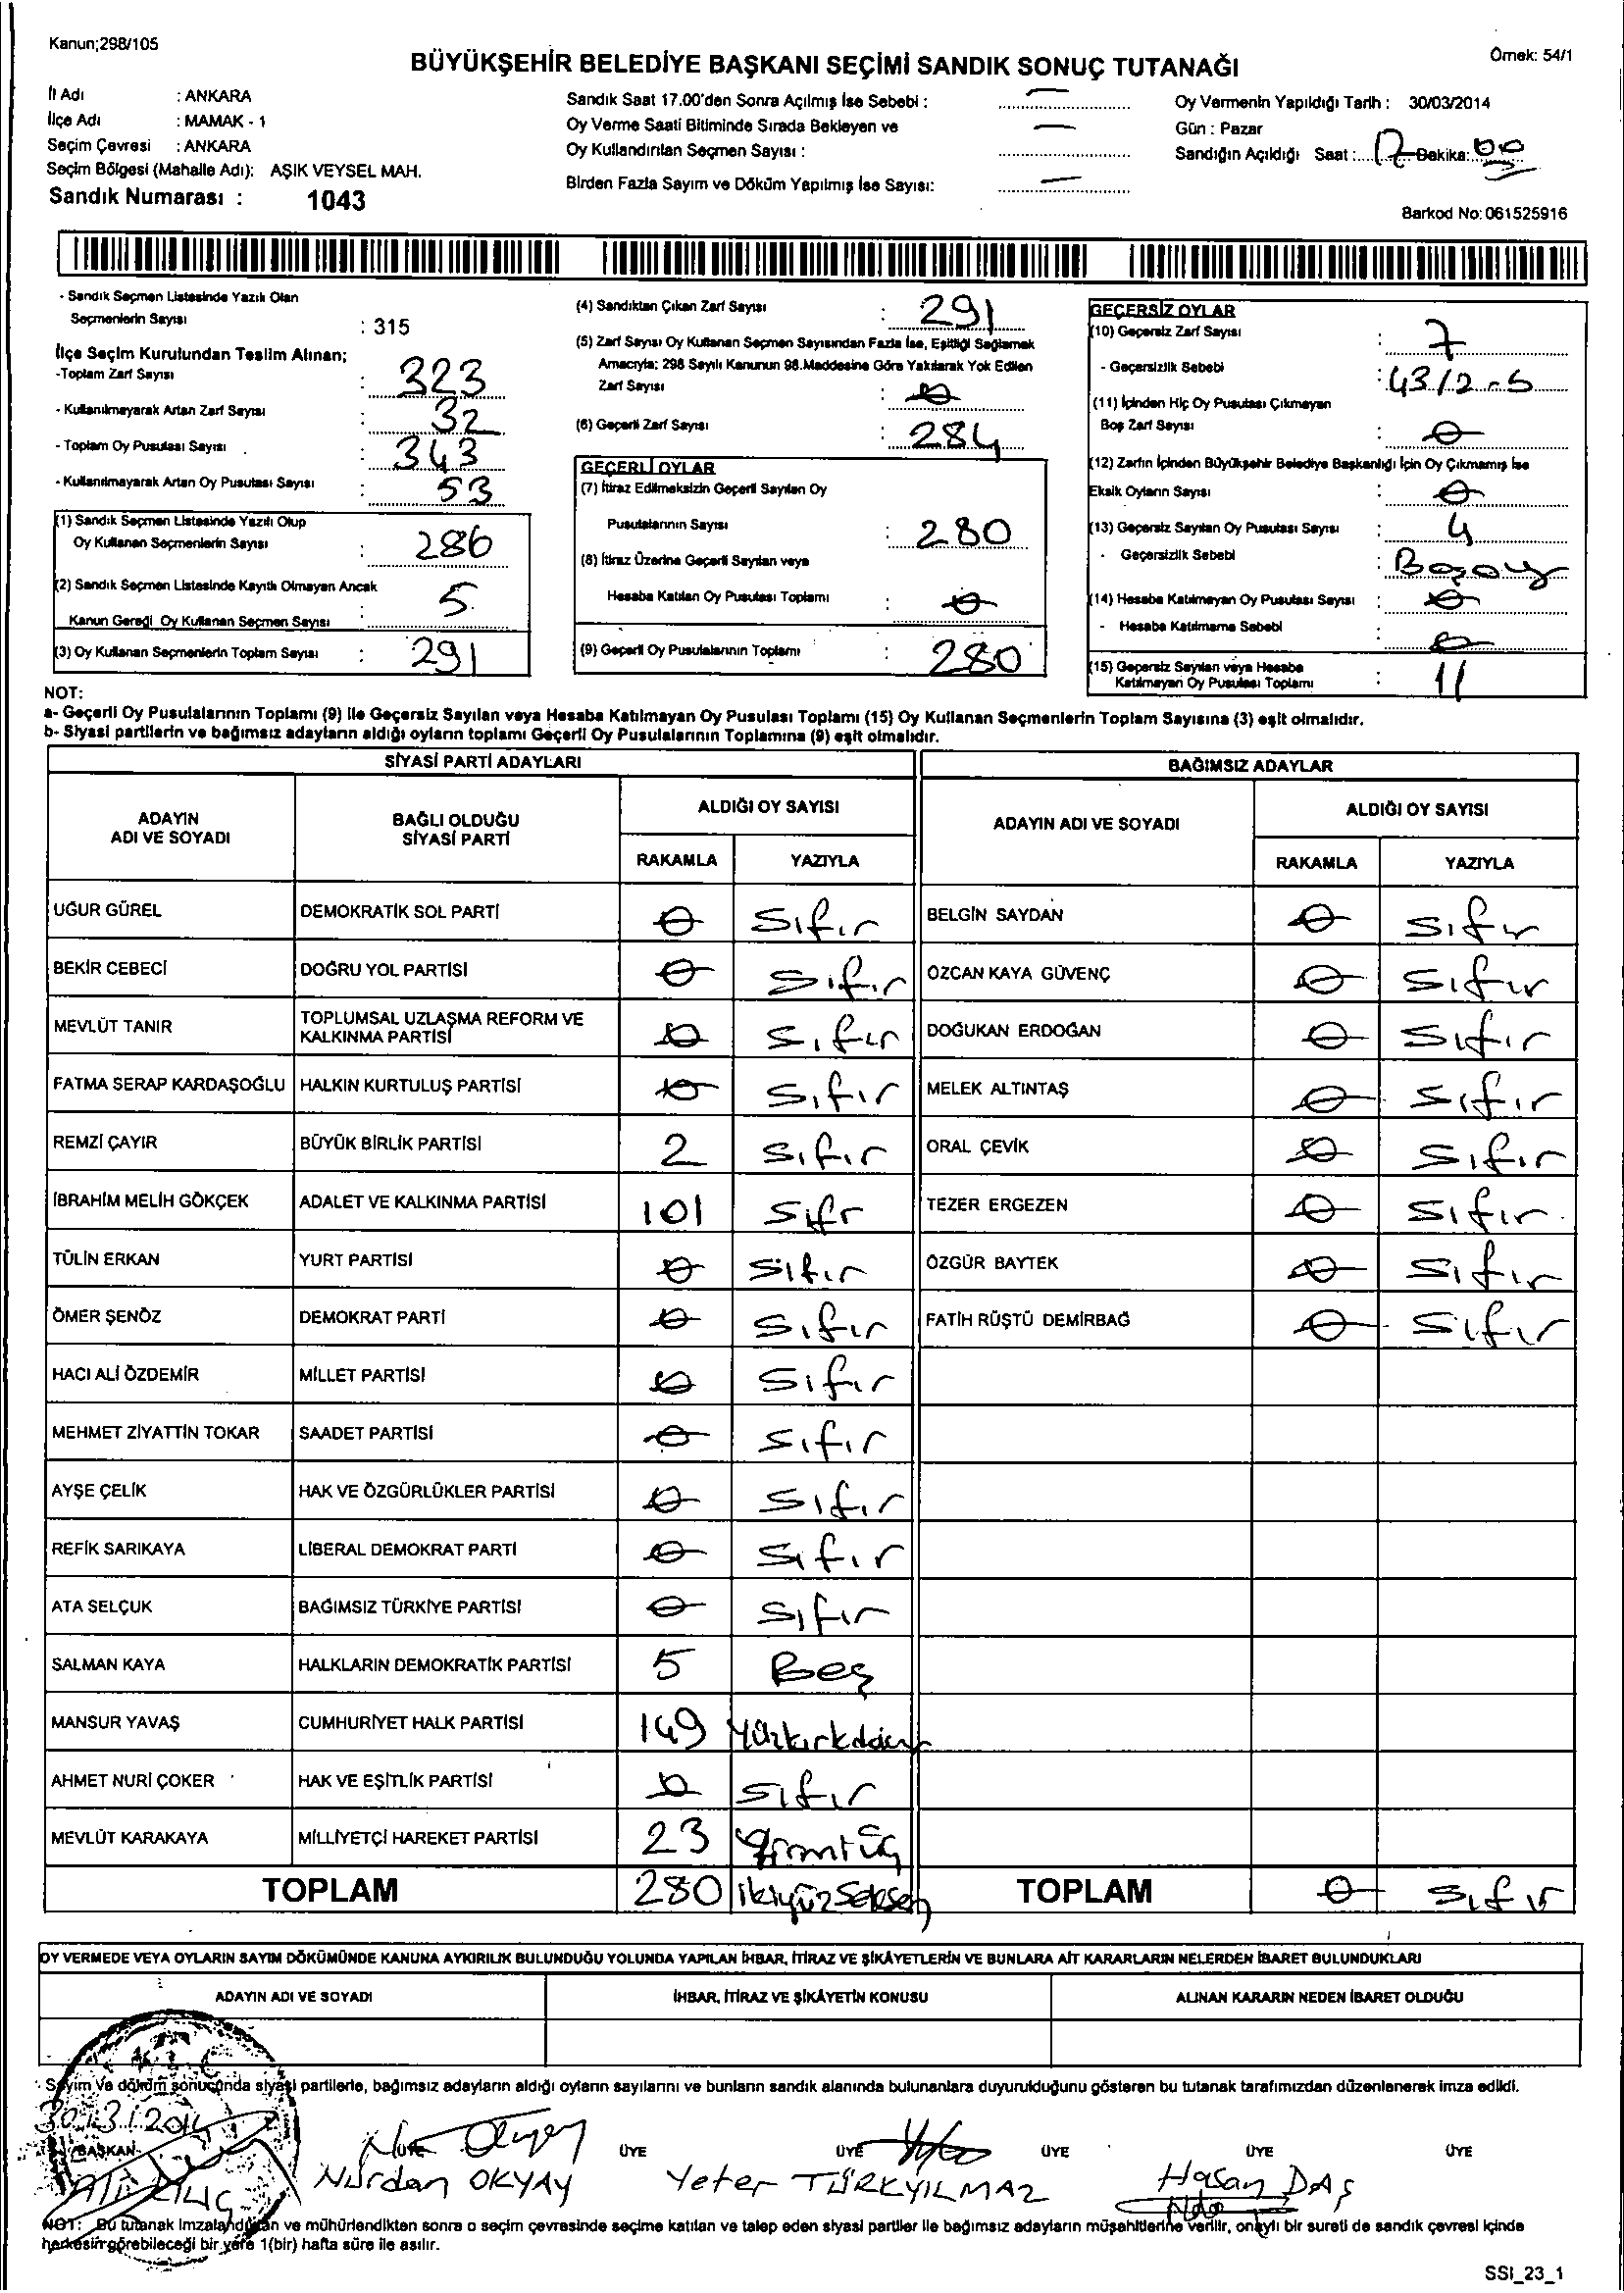 Kanun;298/105
BÜYÜKŞEHİR BELEDİYE BAŞKANI SEÇİMİ SANDIK SONUÇ TUTANAĞI
Örnek: 54/1
İl Adı : ANKARA
İlçe Adı : MAMAK - 1
Seçim Çevresi : ANKARA
Seçim Bölgesi (Mahalle Adı): AŞIK VEYSEL MAH.
Sandık Numarası : 1043
Sandık Saat 17.00'den Sonra Açılmış İse Sebebi : —
Oy Verme Saati Bitiminde Sırada Bekleyen ve
Oy Kullandırılan Seçmen Sayısı : —
Birden Fazla Sayım ve Döküm Yapılmış İse Sayısı: —
Oy Vermenin Yapıldığı Tarih : 30/03/2014
Gün : Pazar
Sandığın Açıldığı Saat : 17 Dakika: 00
Barkod No: 061525916
- Sandık Seçmen Listesinde Yazılı Olan
Seçmenlerin Sayısı : 315
İlçe Seçim Kurulundan Teslim Alınan;
-Toplam Zarf Sayısı : 323
- Kullanılmayarak Artan Zarf Sayısı : 32
- Toplam Oy Pusulası Sayısı : 343
- Kullanılmayarak Artan Oy Pusulası Sayısı : 53
(1) Sandık Seçmen Listesinde Yazılı Olup
Oy Kullanan Seçmenlerin Sayısı : 286
(2) Sandık Seçmen Listesinde Kayıtlı Olmayan Ancak
Kanun Gereği Oy Kullanan Seçmen Sayısı : 5
(3) Oy Kullanan Seçmenlerin Toplam Sayısı : 291
(4) Sandıktan Çıkan Zarf Sayısı : 291
(5) Zarf Sayısı Oy Kullanan Seçmen Sayısından Fazla İse, Eşitliği Sağlamak
Amacıyla; 298 Sayılı Kanunun 98.Maddesine Göre Yakılarak Yok Edilen
Zarf Sayısı : 0
(6) Geçerli Zarf Sayısı : 284
GEÇERLİ OYLAR
(7) İtiraz Edilmeksizin Geçerli Sayılan Oy
Pusulalarının Sayısı : 280
(8) İtiraz Üzerine Geçerli Sayılan veya
Hesaba Katılan Oy Pusulası Toplamı : 0
(9) Geçerli Oy Pusulalarının Toplamı : 280
GEÇERSİZ OYLAR
(10) Geçersiz Zarf Sayısı : 7
- Geçersizlik Sebebi : 43/2-5
(11) İçinden Hiç Oy Pusulası Çıkmayan
Boş Zarf Sayısı : 0
(12) Zarfın İçinden Büyükşehir Belediye Başkanlığı İçin Oy Çıkmamış İse
Eksik Oyların Sayısı : 0
(13) Geçersiz Sayılan Oy Pusulası Sayısı : 4
- Geçersizlik Sebebi : Boşoy
(14) Hesaba Katılmayan Oy Pusulası Sayısı : 0
- Hesaba Katılmama Sebebi : 0
(15) Geçersiz Sayılan veya Hesaba
Katılmayan Oy Pusulası Toplamı : 11
NOT:
a- Geçerli Oy Pusulalarının Toplamı (9) ile Geçersiz Sayılan veya Hesaba Katılmayan Oy Pusulası Toplamı (15) Oy Kullanan Seçmenlerin Toplam Sayısına (3) eşit olmalıdır.
b- Siyasi partilerin ve bağımsız adayların aldığı oyların toplamı Geçerli Oy Pusulalarının Toplamına (9) eşit olmalıdır.
SİYASİ PARTİ ADAYLARI
ADAYIN ADI VE SOYADI BAĞLI OLDUĞU SİYASİ PARTİ ALDIĞI OY SAYISI
RAKAMLA YAZIYLA
UĞUR GÜREL DEMOKRATİK SOL PARTİ 0 Sıfır
BEKİR CEBECİ DOĞRU YOL PARTİSİ 0 Sıfır
MEVLÜT TANIR TOPLUMSAL UZLAŞMA REFORM VE KALKINMA PARTİSİ 0 Sıfır
FATMA SERAP KARDAŞOĞLU HALKIN KURTULUŞ PARTİSİ 0 Sıfır
REMZİ ÇAYIR BÜYÜK BİRLİK PARTİSİ 2 Sıfır
İBRAHİM MELİH GÖKÇEK ADALET VE KALKINMA PARTİSİ 101 Sıfr
TÜLİN ERKAN YURT PARTİSİ 0 Sıfır
ÖMER ŞENÖZ DEMOKRAT PARTİ 0 Sıfır
HACI ALİ ÖZDEMİR MİLLET PARTİSİ 0 Sıfır
MEHMET ZİYATTİN TOKAR SAADET PARTİSİ 0 Sıfır
AYŞE ÇELİK HAK VE ÖZGÜRLÜKLER PARTİSİ 0 Sıfır
REFİK SARIKAYA LİBERAL DEMOKRAT PARTİ 0 Sıfır
ATA SELÇUK BAĞIMSIZ TÜRKİYE PARTİSİ 0 Sıfır
SALMAN KAYA HALKLARIN DEMOKRATİK PARTİSİ 5 Beş
MANSUR YAVAŞ CUMHURİYET HALK PARTİSİ 149
AHMET NURİ ÇOKER HAK VE EŞİTLİK PARTİSİ 0 Sıfır
MEVLÜT KARAKAYA MİLLİYETÇİ HAREKET PARTİSİ 23
TOPLAM 280 ikiyüzSeksen
BAĞIMSIZ ADAYLAR
ADAYIN ADI VE SOYADI ALDIĞI OY SAYISI
RAKAMLA YAZIYLA
BELGİN SAYDAN 0 Sıfır
ÖZCAN KAYA GÜVENÇ 0 Sıfır
DOĞUKAN ERDOĞAN 0 Sıfır
MELEK ALTINTAŞ 0 Sıfır
ORAL ÇEVİK 0 Sıfır
TEZER ERGEZEN 0 Sıfır
ÖZGÜR BAYTEK 0 Sıfır
FATİH RÜŞTÜ DEMİRBAĞ 0 Sıfır
TOPLAM 0 Sıfır
OY VERMEDE VEYA OYLARIN SAYIM DÖKÜMÜNDE KANUNA AYKIRILIK BULUNDUĞU YOLUNDA YAPILAN İHBAR, İTİRAZ VE ŞİKÂYETLERİN VE BUNLARA AİT KARARLARIN NELERDEN İBARET BULUNDUKLARI
ADAYIN ADI VE SOYADI İHBAR, İTİRAZ VE ŞİKÂYETİN KONUSU ALINAN KARARIN NEDEN İBARET OLDUĞU
Sayım ve döküm sonucunda siyasi partilerle, bağımsız adayların aldığı oyların sayılarını ve bunların sandık alanında bulunanlara duyurulduğunu gösteren bu tutanak tarafımızdan düzenlenerek imza edildi.
30/3/2014
BAŞKAN ÜYE ÜYE ÜYE ÜYE ÜYE ÜYE
Nurdan OKYAY Yeter TÜRKYILMAZ Hasan DAŞ
NOT: Bu tutanak imzalandıktan ve mühürlendikten sonra o seçim çevresinde seçime katılan ve talep eden siyasi partiler ile bağımsız adayların müşahitlerine verilir, onaylı bir sureti de sandık çevresi içinde
herkesin görebileceği bir yere 1(bir) hafta süre ile asılır.
SSI_23_1